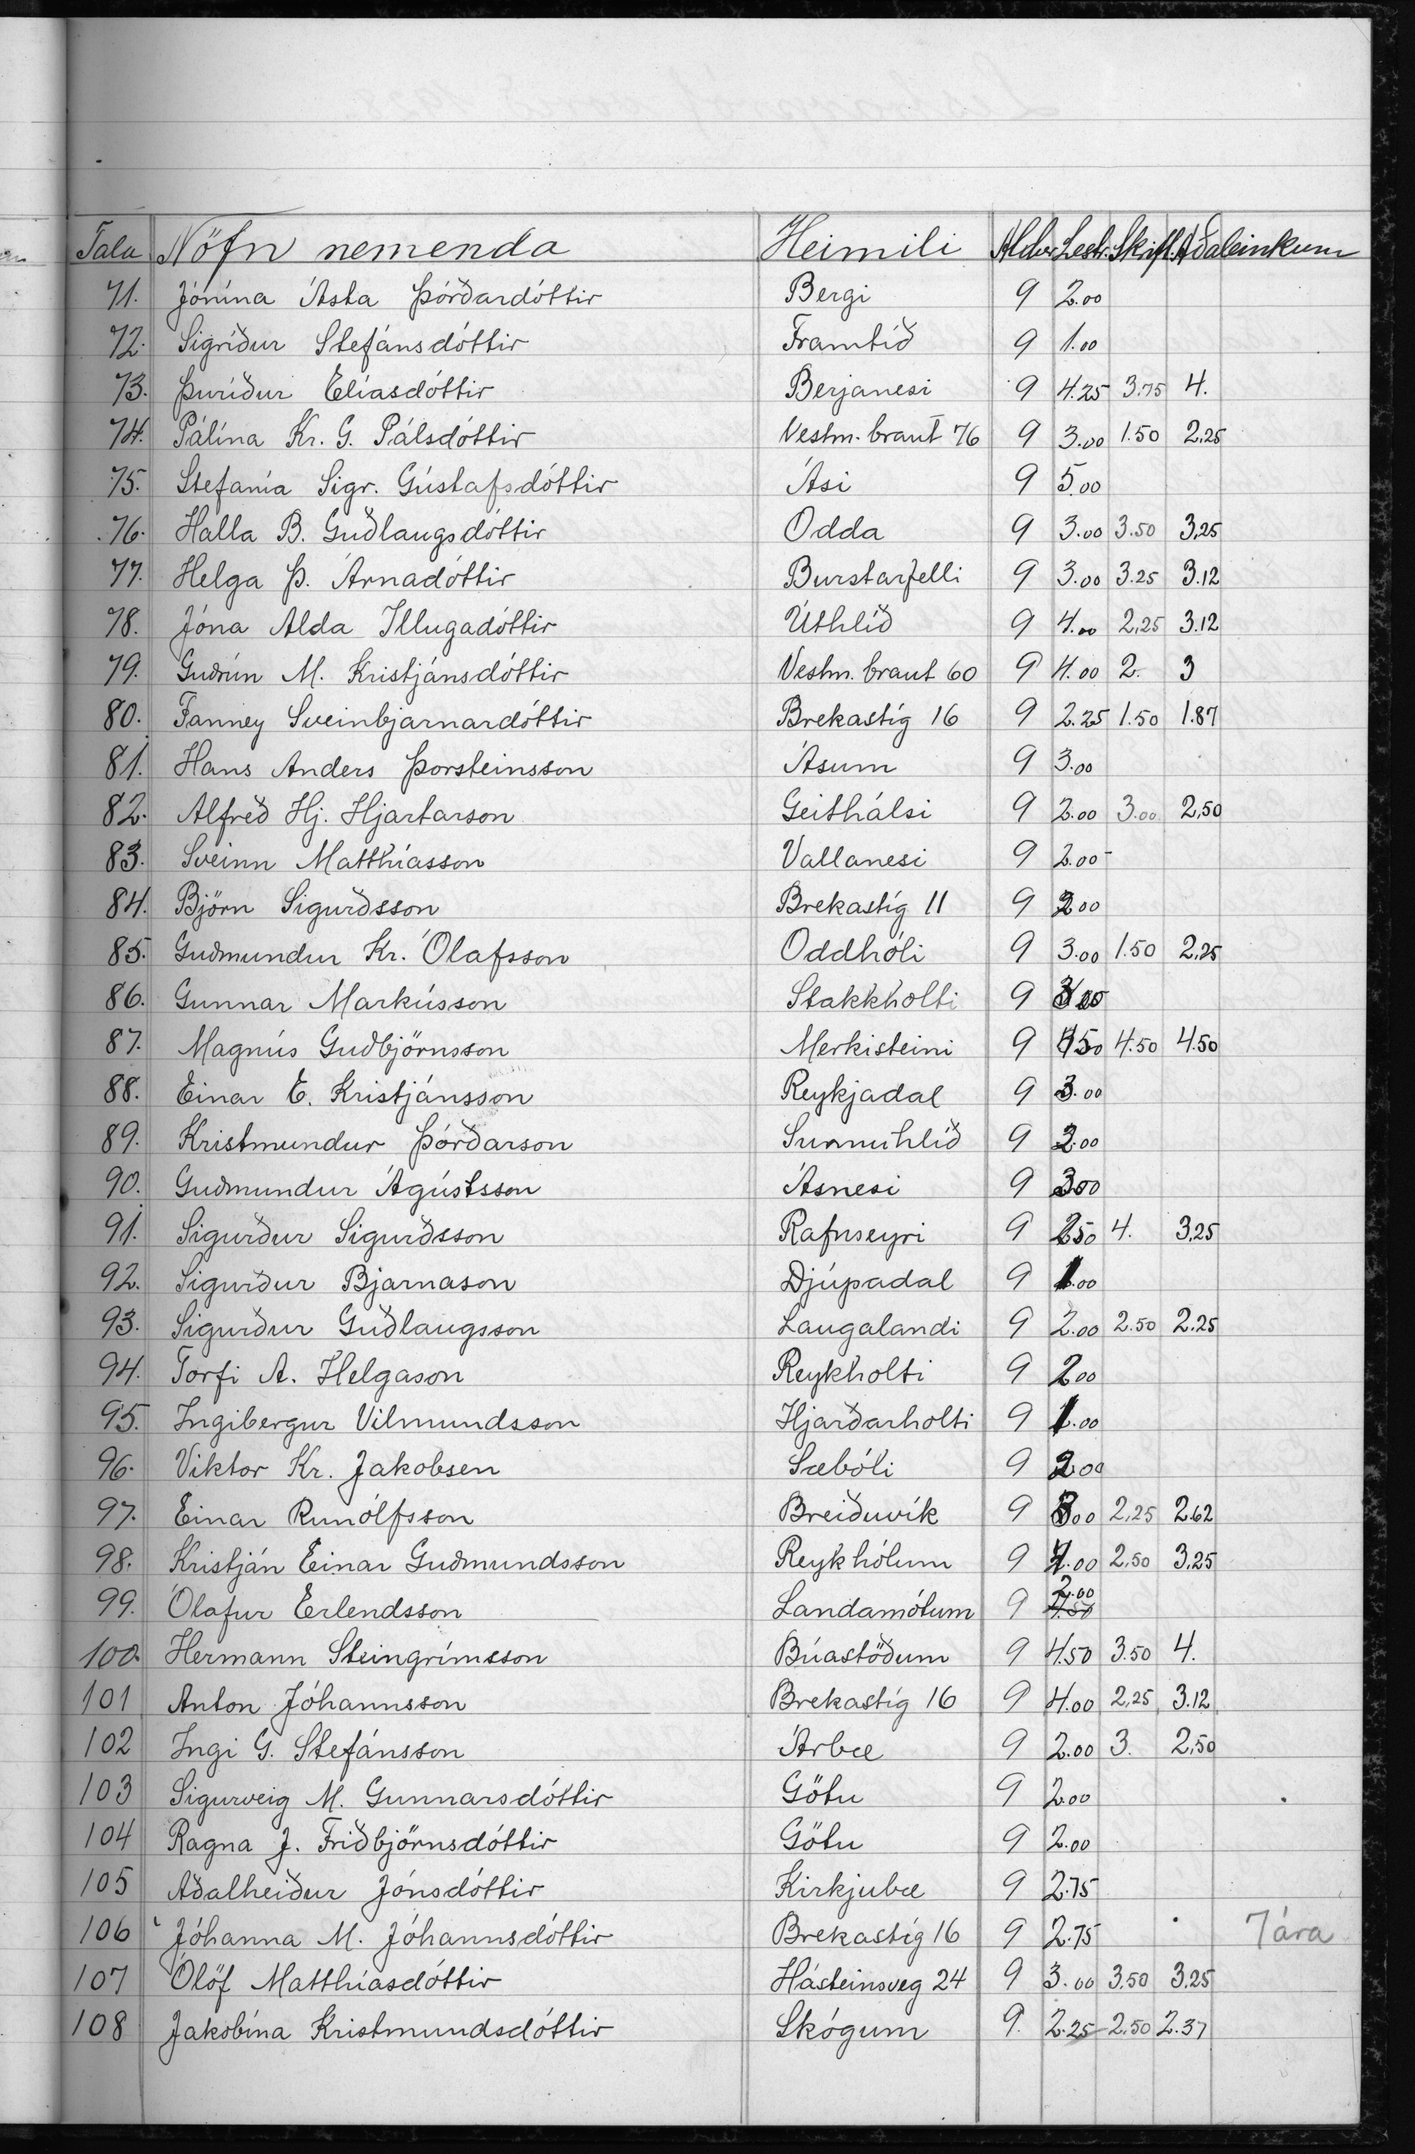 Tala Nöfn nemenda Heimili Aldur Lestr. Skrift. Aðaleinkunn
71. Jónína Ásta Þórðardóttir Bergi 9 2.00
72. Sigríður Stefánsdóttir Framtíð 9 1.00
73. Þuríður Elíasdóttir Berjanesi 9 4.25 3.75 4.
74. Pálína Kr. G. Pálsdóttir Vestm. braut 76 9 3.00 1.50 2.25
75. Stefanía Sigr. Gústafsdóttir Ási 9 5.00
76. Halla B. Guðlaugsdóttir Odda 9 3.00 3.50 3,25
77. Helga Þ. Árnadóttir Burstarfelli 9 3.00 3.25 3.12
78. Jóna Alda Illugadóttir Úthlíð 9 4.00 2,25 3.12
79. Guðrún M. Kristjánsdóttir Vestm. braut 60 9 4.00 2. 3
80. Fanney Sveinbjarnardóttir Brekastíg 16 9 2.25 1.50 1.87
81. Hans Anders Þorsteinsson Ásum 9 3.00
82. Alfreð Hj. Hjartarson Geithálsi 9 2.00 3.00 2,50
83. Sveinn Matthíasson Vallanesi 9 2.00
84. Björn Sigurðsson Brekastíg 11 9 2.00
85. Guðmundur Kr. Ólafsson Oddhóli 9 3.00 1.50 2,25
86. Gunnar Markússon Stakkholti 9
87. Magnús Guðbjörnsson Merkisteini 9 4.50 4.50 4.50
88. Einar E. Kristjánsson Reykjadal 9 3.00
89. Kristmundur Þórðarson Sunnuhlíð 9 2.00
90. Guðmundur Ágústsson Ásnesi 9 3.00
91. Sigurður Sigurðsson Rafnseyri 9 2.50 4. 3,25
92. Sigurður Bjarnason Djúpadal 9 1.00
93. Sigurður Guðlaugsson Laugalandi 9 2.00 2.50 2.25
94. Torfi A. Helgason Reykholti 9 2.00
95. Ingibergur Vilmundsson Hjarðarholti 9 1.00
96. Viktor Kr. Jakobsen Sæbóli 9 2.00
97. Einar Runólfsson Breiðuvík 9 3.00 2,25 2.62
98. Kristján Einar Guðmundsson Reykhólum 9 4.00 2,50 3,25
99. Ólafur Erlendsson Landamótum 9 2.00
100. Hermann Steingrímsson Búastöðum 9 4.50 3.50 4.
101 Anton Jóhannsson Brekastíg 16 9 4.00 2,25 3.12
102 Ingi G. Stefánsson Árbæ 9 2.00 3. 2,50
103 Sigurveig M. Gunnarsdóttir Götu 9 2.00
104 Ragna J. Friðbjörnsdóttir Götu 9 2.00
105 Aðalheiður Jónsdóttir Kirkjubæ 9 2.75
106 Jóhanna M. Jóhannsdóttir Brekastíg 16 9 2.75 7 ára
107 Ólöf Matthíasdóttir Hásteinsveg 24 9 3.00 3,50 3.25
108 Jakobína Kristmundsdóttir Skógum 9. 2.25 2.50 2.37